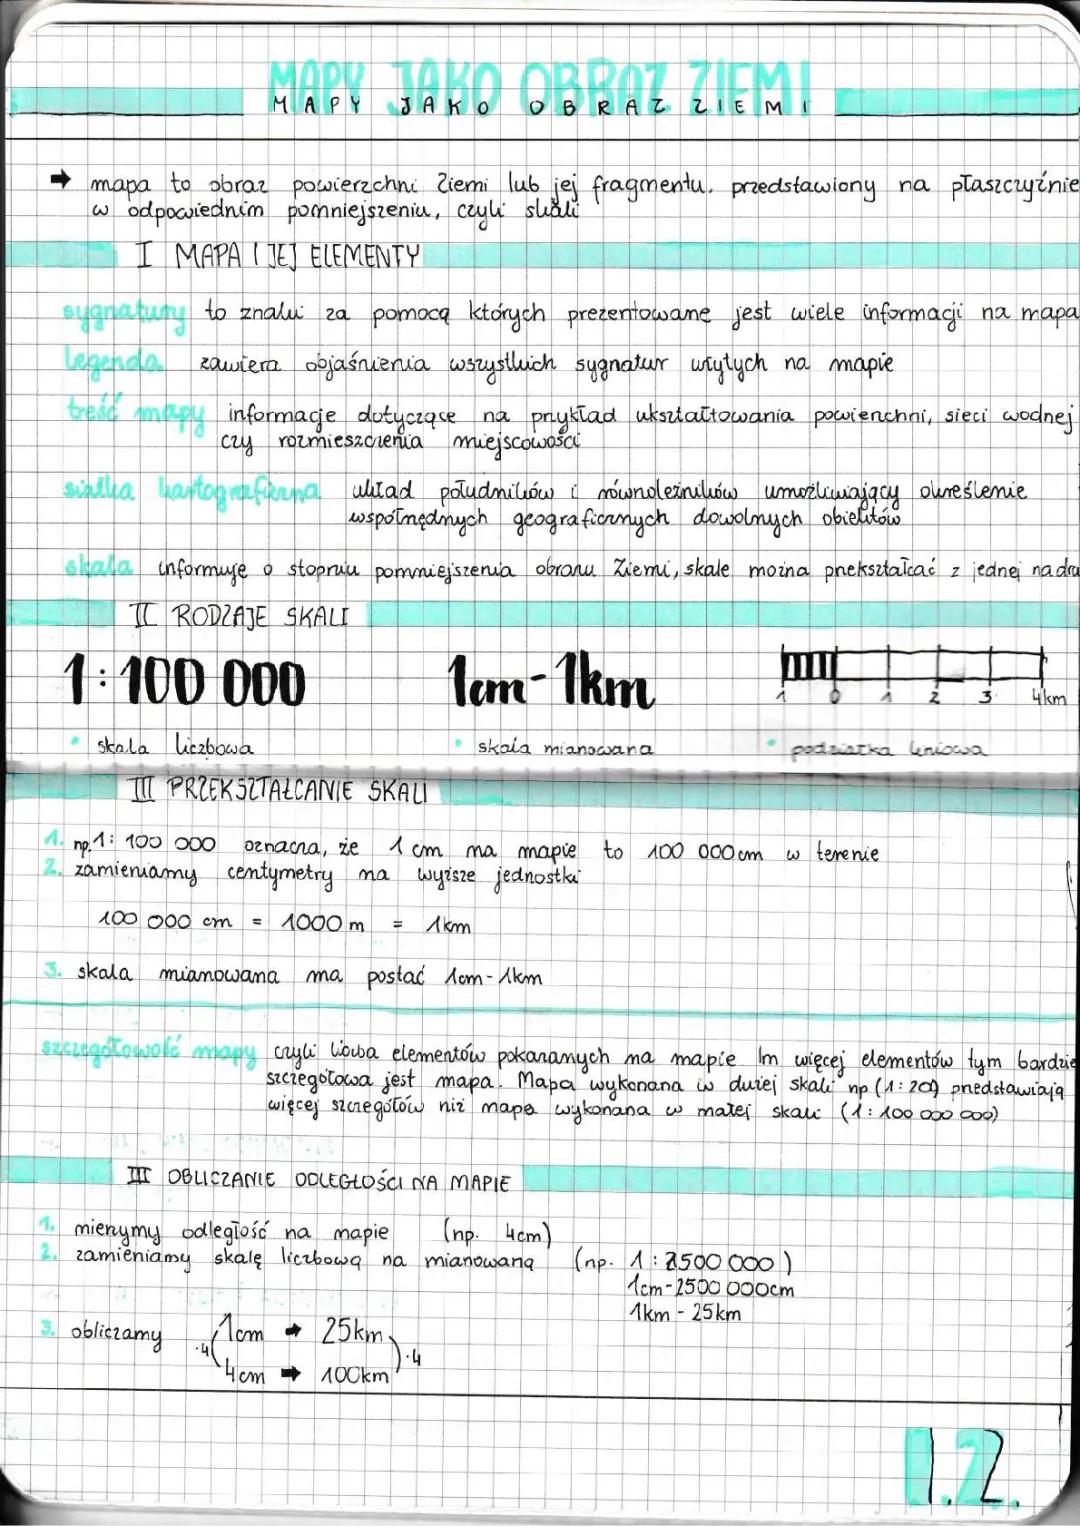 MAPY JAKO OBRAZ ZIEMI
→ mapa to obraz powierzchni Ziemi lub jej fragmentu, przedstawiony na płaszczyźnie
w odpowiednim pomniejszeniu, czyli skali
I MAPA I JEJ ELEMENTY
sygnatury to znaki za pomocą których prezentowane jest wiele informacji na mapa
legenda zawiera objaśnienia wszystkich sygnatur użytych na mapie
treść mapy informacje dotyczące na przykład ukształtowania powierzchni, sieci wodnej
czy rozmieszczenia miejscowości
siatka kartograficzna układ południków i równoleżników umożliwiający określenie
współrzędnych geograficznych dowolnych obiektów
skala informuje o stopniu pomniejszenia obrazu Ziemi, skale można przekształcać z jednej na dru
II RODZAJE SKALI
1:100 000 1cm-1km 1 0 1 2 3 4km
• skala liczbowa • skala mianowana • podziałka liniowa
III PRZEKSZTAŁCANIE SKALI
1. np. 1: 100 000 oznacza, że 1 cm na mapie to 100 000cm w terenie
2. zamieniamy centymetry na wyższe jednostki
100 000 cm = 1000 m = 1km
3. skala mianowana ma postać 1cm-1km
szczegółowość mapy czyli liczba elementów pokazanych na mapie Im więcej elementów tym bardzie
szczegółowa jest mapa. Mapa wykonana w dużej skali np (1:20) przedstawiają
więcej szczegółów niż mapa wykonana w małej skali (1: 100 000 000)
III OBLICZANIE ODLEGŁOŚCI NA MAPIE
1. mierzymy odległość na mapie (np. 4cm)
2. zamieniamy skalę liczbową na mianowaną (np. 1:2500 000)
1cm-2500 000cm
1km - 25km
3. obliczamy 1cm → 25km
·4 ·4
4cm → 100km
1.2.